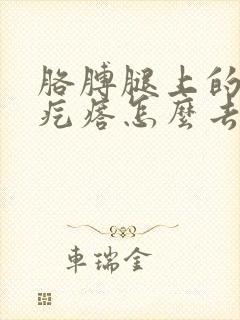 胳膊腿上的
疙瘩怎麼去
車瑞金